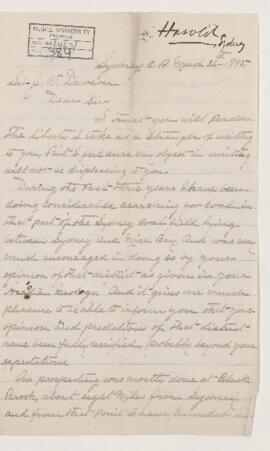 McGILL UNIVERSITY
ARCHIVES
ACC. NO. 1022
REF. 38
Harold
Sydney
Sydney C. B. March 26th 1895
Sir J. W. Dawson
Dear Sir
I trust you will pardon
the liberty I take as a stranger of writing
to you, But I feel sure my object in writing
will not be displeasing to you.
During the Past three years I have been
doing considerable searching for Coal in
that part of the Sydney Coal field lying
between Sydney and Mira Bay, And was very
much encouraged in doing so by your
opinion of that district as given in your
"Acadia Geology" And it gives me much
pleasure to be able to inform you that your
opinion and predictions of that district
have been fully verified, probably beyond your
expectations.
Our prospecting was mostly done at Black
Brook, about eight Miles from Sydney,
and from that Point I have